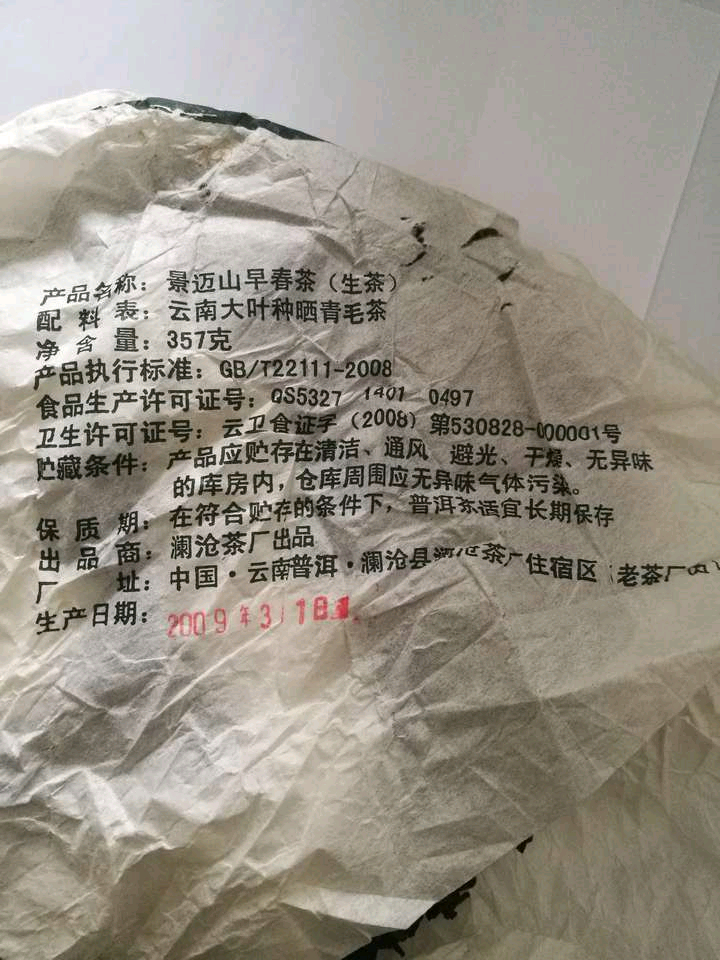 产品名称：景迈山早春茶（生茶）
配料表：云南大叶种晒青毛茶
净含量：357克
产品执行标准：GB/T22111-2008
食品生产许可证号：QS5327 1401 0497
卫生许可证号：云卫食证字（2008）第530828-000001号
贮藏条件：产品应贮存在清洁、通风 避光、干燥、无异味
的库房内，仓库周围应无异味气体污染。
保质期：在符合贮存的条件下，普洱茶适宜长期保存
出品商：澜沧茶厂出品
厂址：中国·云南普洱·澜沧县澜沧茶厂住宿区（老茶厂
生产日期：2009年3月1日